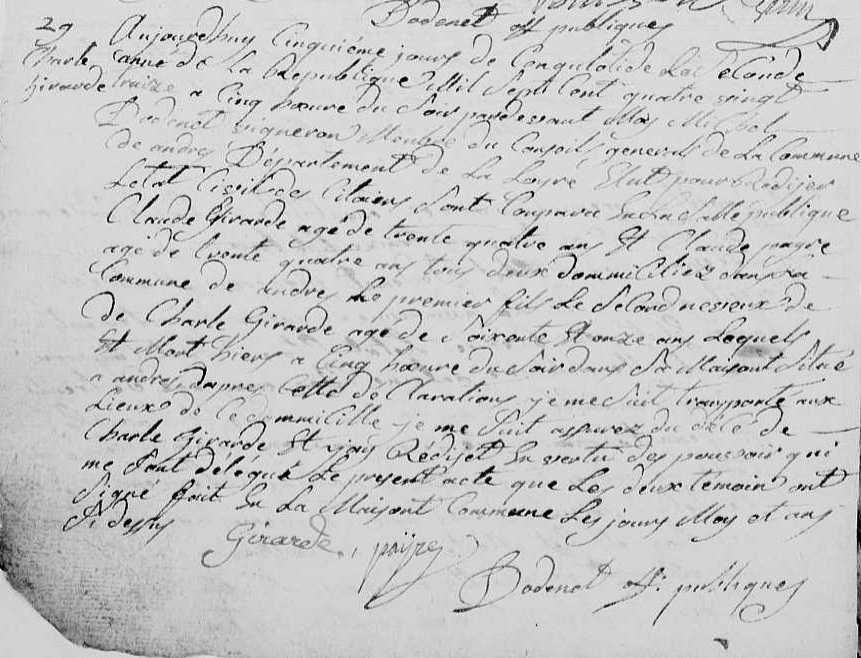 Bodenet off publiques
29
Charle
Girarde
Aujourdhuy Cinquiéme jours de Lan
anné de La Republique Mil Sept Cent quatre vingt
traize a Cinq hoeure du Soir pardessant Moy Michel
Bodenet vigneron Membre du Conseils general de La Commune
de andres Département de La Loyre Elut pour Redijer
Letat Civil des Citoiens Sont Comparu En La Salle publique
Claude Girarde agé de trente quatre ans Et Claude payre
agé de trente quatre ans tous deux dommiciliez dans La
Commune de andres Le premier fils Le Second nesveux de
de Charle Girarde agé de Soixonte Et onze ans Lequels
Et Mort hiers a Cinq hoeure du Soir dans Sa Maisont Situé
a andres daprés Cette de Clarations je me Suit transporté aux
Lieux de Ce dommicille je me Suit assurez du décé de
Charle Girarde Et jay Rédijet En vertu des pouvoir qui
me Sont délegué Le present acte que Les deux temoin ont
Signé fait En La Maisont Commune Les jours Moy et ans
Si dessus
Girarde, payre
Bodenet off. publiques